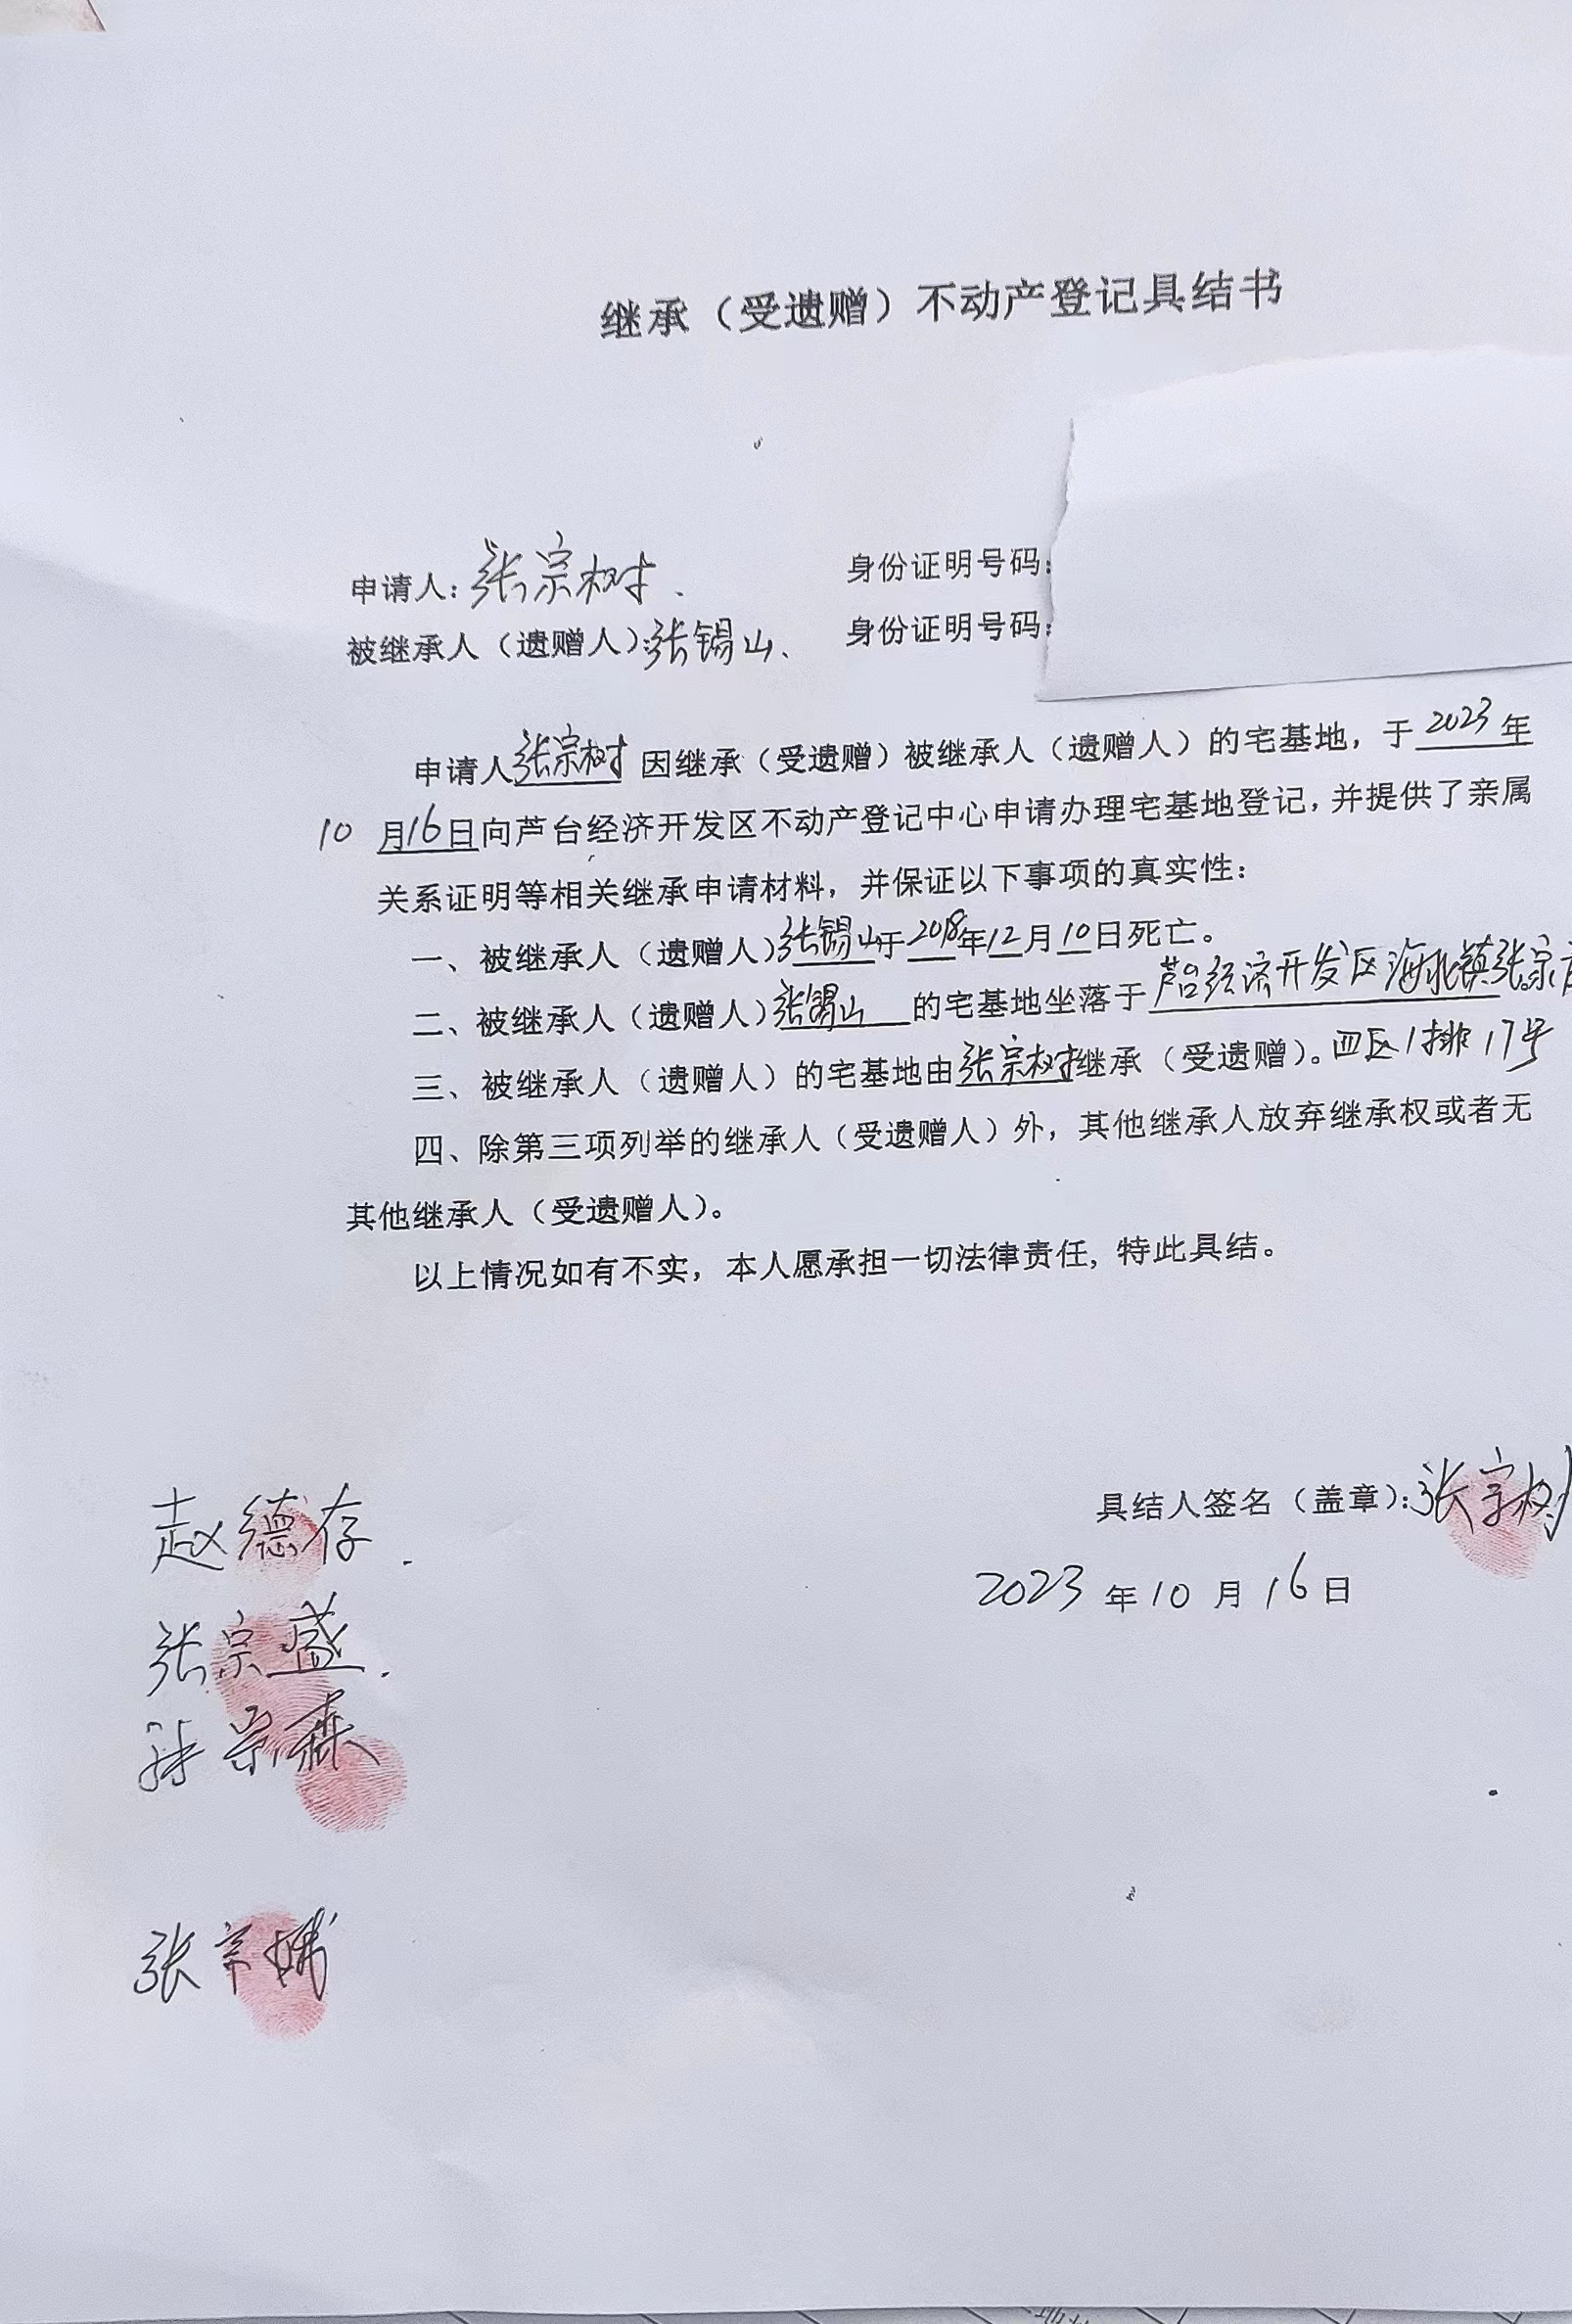 继承（受遗赠）不动产登记具结书
申请人：张宗树、 身份证明号码：
被继承人（遗赠人）：张锡山、 身份证明号码：
申请人张宗树因继承（受遗赠）被继承人（遗赠人）的宅基地，于2023年
10月16日向芦台经济开发区不动产登记中心申请办理宅基地登记，并提供了亲属
关系证明等相关继承申请材料，并保证以下事项的真实性：
一、被继承人（遗赠人）张锡山于2018年12月10日死亡。
二、被继承人（遗赠人）张锡山的宅基地坐落于芦台经济开发区海北镇张宗
三、被继承人（遗赠人）的宅基地由张宗树继承（受遗赠）。四区1排17号
四、除第三项列举的继承人（受遗赠人）外，其他继承人放弃继承权或者无
其他继承人（受遗赠人）。
以上情况如有不实，本人愿承担一切法律责任，特此具结。
具结人签名（盖章）：张宗树
2023年10月16日
赵德存.
张宗盛.
张宗森
张宗